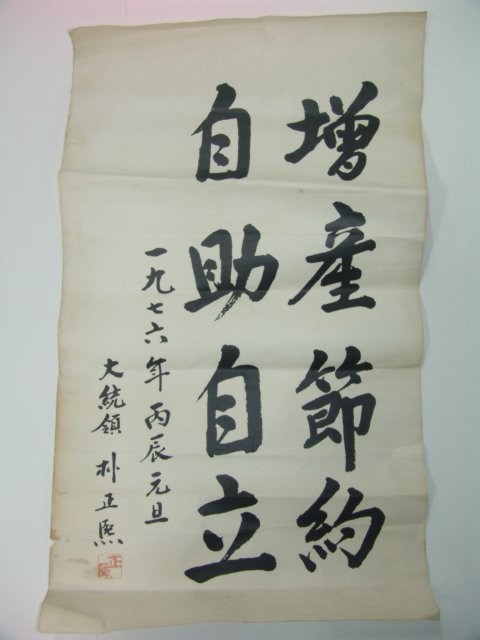 增產節約
自助自立
一九七六年 丙辰元旦
大統領 朴正熙